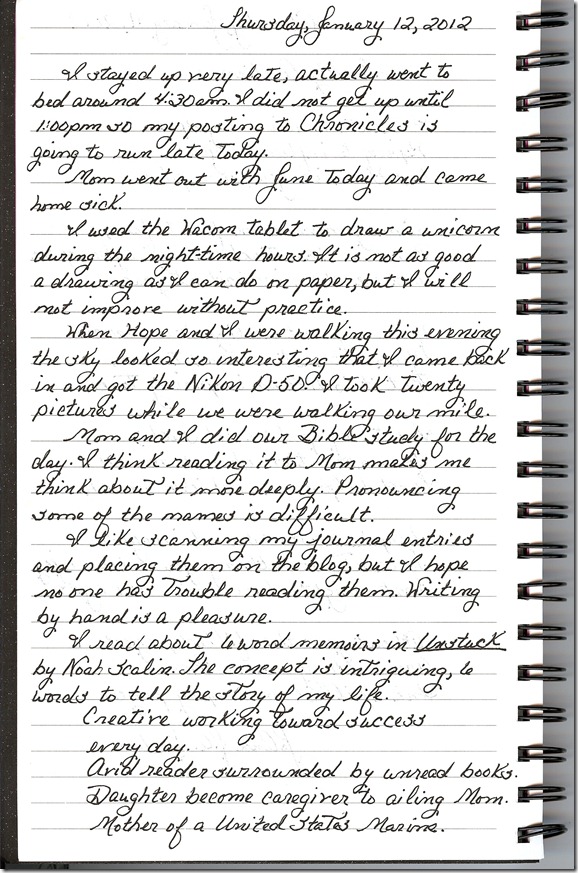 Thursday, January 12, 2012
I stayed up very late, actually went to
bed around 4:30am. I did not get up until
1:00pm so my posting to Chronicles is
going to run late today.
Mom went out with June today and came
home sick.
I used the Wacom tablet to draw a unicorn
during the night-time hours. It is not as good
a drawing as I can do on paper, but I will
not improve without practice.
When Hope and I were walking this evening
the sky looked so interesting that I came back
in and got the Nikon D-50. I took twenty
pictures while we were walking our mile.
Mom and I did our Bible study for the
day. I think reading it to Mom makes me
think about it more deeply. Pronouncing
some of the names is difficult.
I like scanning my journal entries
and placing them on the blog, but I hope
no one has trouble reading them. Writing
by hand is a pleasure.
I read about 6 word memoirs in Unstuck
by Noah Scalin. The concept is intriguing, 6
words to tell the story of my life.
Creative working toward success
every day.
Avid reader surrounded by unread books.
Daughter become caregiver to ailing Mom.
Mother of a United States Marine.